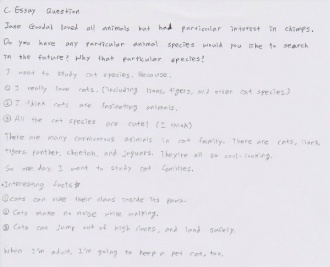 C. Essay Question
Jane Goodal loved all animals but had particular interest in chimps.
Do you have any particular animal species would you like to search
in the future? Why that particular species?
I want to study cat species. Because.
① I really love cats. (Including lions, tigers, and other cat species)
② I think cats are fasinating animals.
③ All the cat species are cute! (I think)
There are many carnivorous animals in cat family. There are cats, lions,
tigers, panther, cheetah, and jaguars. They're all so cool-looking.
So one day I want to study cat families.
•Interesting facts
① Cats can hide their claws inside its paws.
② Cats make no noise while walking.
③ Cats can jump out of high places, and land safely.
When I'm adult, I'm going to keep a pet cat, too.